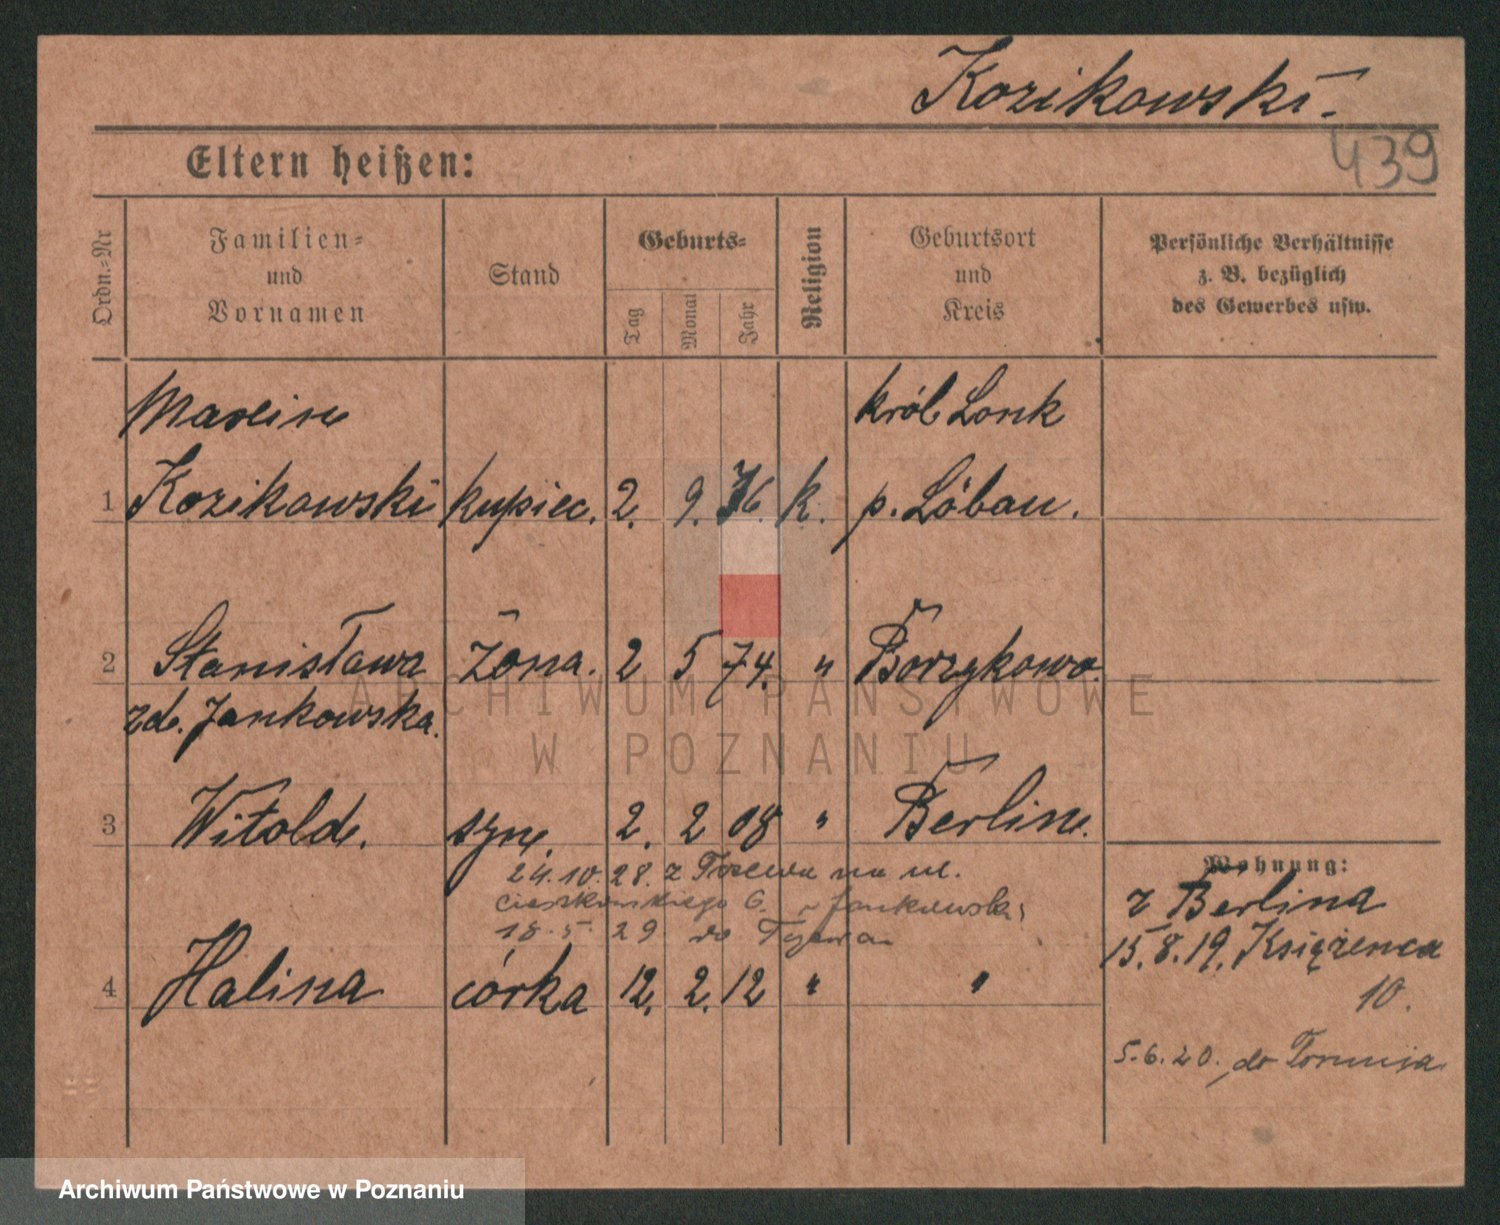 Kozikowski.
439
Eltern heißen:
Ordn.-Nr
Familien- und Vornamen
Stand
Geburts-
Tag
Monat
Jahr
Religion
Geburtsort und Kreis
Persönliche Verhältnisse
z. B. bezüglich
des Gewerbes usw.
Marcin król Lonk
1 Kozikowski kupiec. 2. 9. 76. k. p. Löbau.
2 Stanisława Żona. 2 5 74. " Borzykowo.
zd. Jankowska.
3 Witold. syn. 2. 2 08 " Berlin.
24.10.28. z Tczewa na ul.
Cieszkowskiego 6.
18.5.29 do
4 Halina córka 12. 2. 12 " "
Wohnung:
z Berlina
15.8.19. Książenca
10.
5.6.20. do Torunia
ARCHIWUM PAŃSTWOWE
W POZNANIU
Archiwum Państwowe w Poznaniu